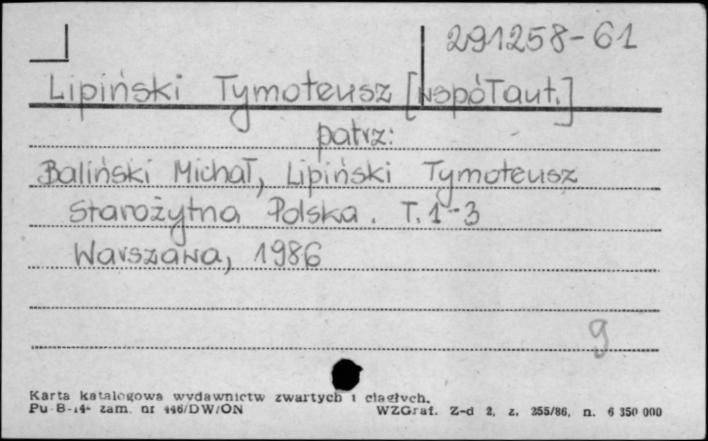 291258-61
Lipiński Tymoteusz [współaut.]
patrz:
Baliński Michał, Lipiński Tymoteusz
Starożytna Polska. T. 1-3
Warszawa, 1986
9
Karta katalogowa wydawnictw zwartych i ciągłych.
Pu B-14 zam. nr 446/DW/ON WZGraf. Z-d 2, z. 255/86, n. 6 350 000